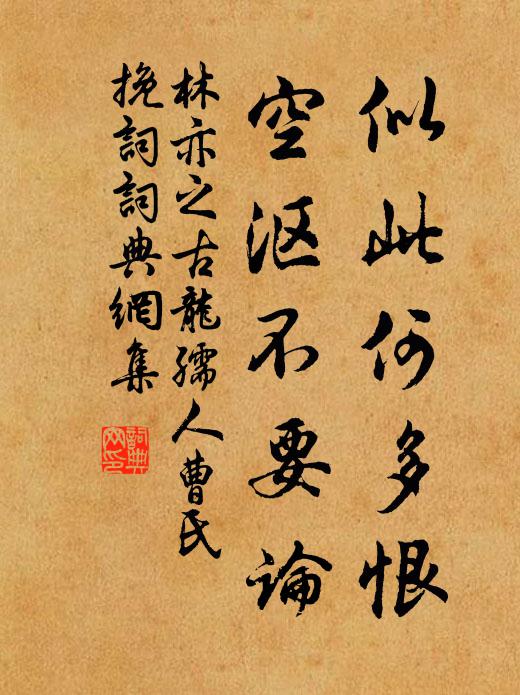 似此何多恨
空沤不要論
林亦之古龍孺人曹氏
挽詞詞典網集
詞典
网印